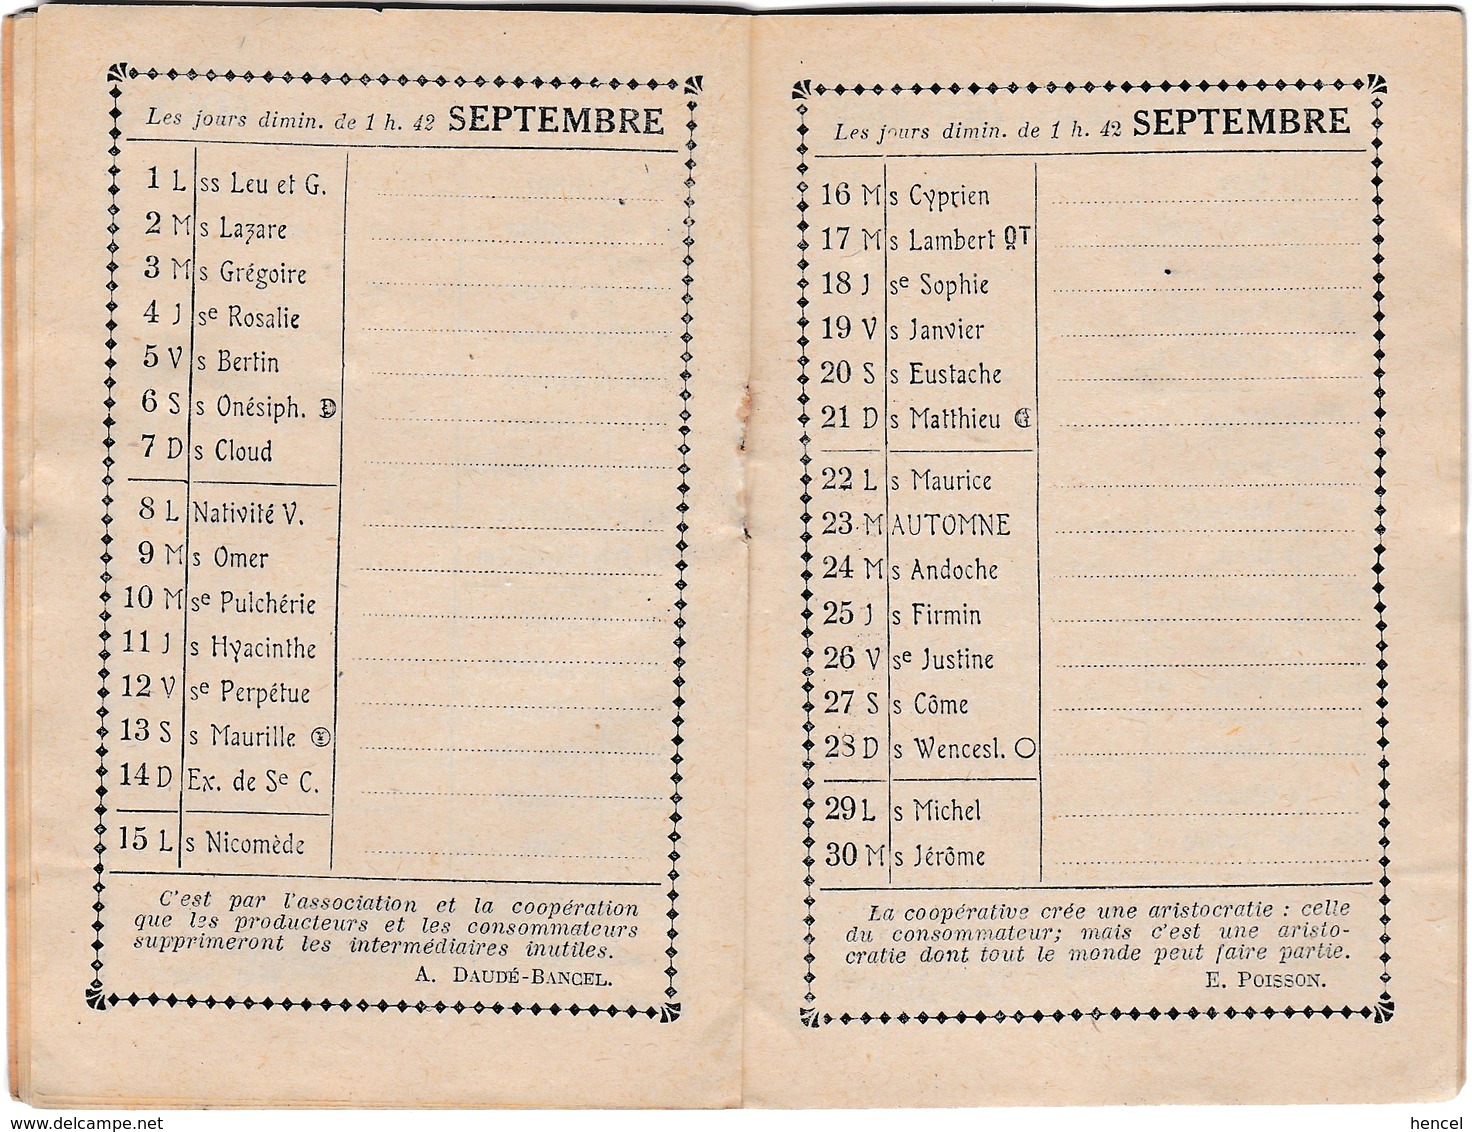 Les jours dimin. de 1 h. 42 SEPTEMBRE
1 L ss Leu et G.
2 M s Lazare
3 M s Grégoire
4 J se Rosalie
5 V s Bertin
6 S s Onésiph.
7 D s Cloud
8 L Nativité V.
9 M s Omer
10 M se Pulchérie
11 J s Hyacinthe
12 V se Perpétue
13 S s Maurille
14 D Ex. de Se C.
15 L s Nicomède
C'est par l'association et la coopération
que les producteurs et les consommateurs
supprimeront les intermédiaires inutiles.
A. DAUDÉ-BANCEL.
Les jours dimin. de 1 h. 42 SEPTEMBRE
16 M s Cyprien
17 M s Lambert QT
18 J se Sophie
19 V s Janvier
20 S s Eustache
21 D s Matthieu
22 L s Maurice
23 M AUTOMNE
24 M s Andoche
25 J s Firmin
26 V se Justine
27 S s Côme
28 D s Wencesl.
29 L s Michel
30 M s Jérôme
La coopérative crée une aristocratie : celle
du consommateur; mais c'est une aristo-
cratie dont tout le monde peut faire partie.
E. POISSON.
www.delcampe.net
hencel